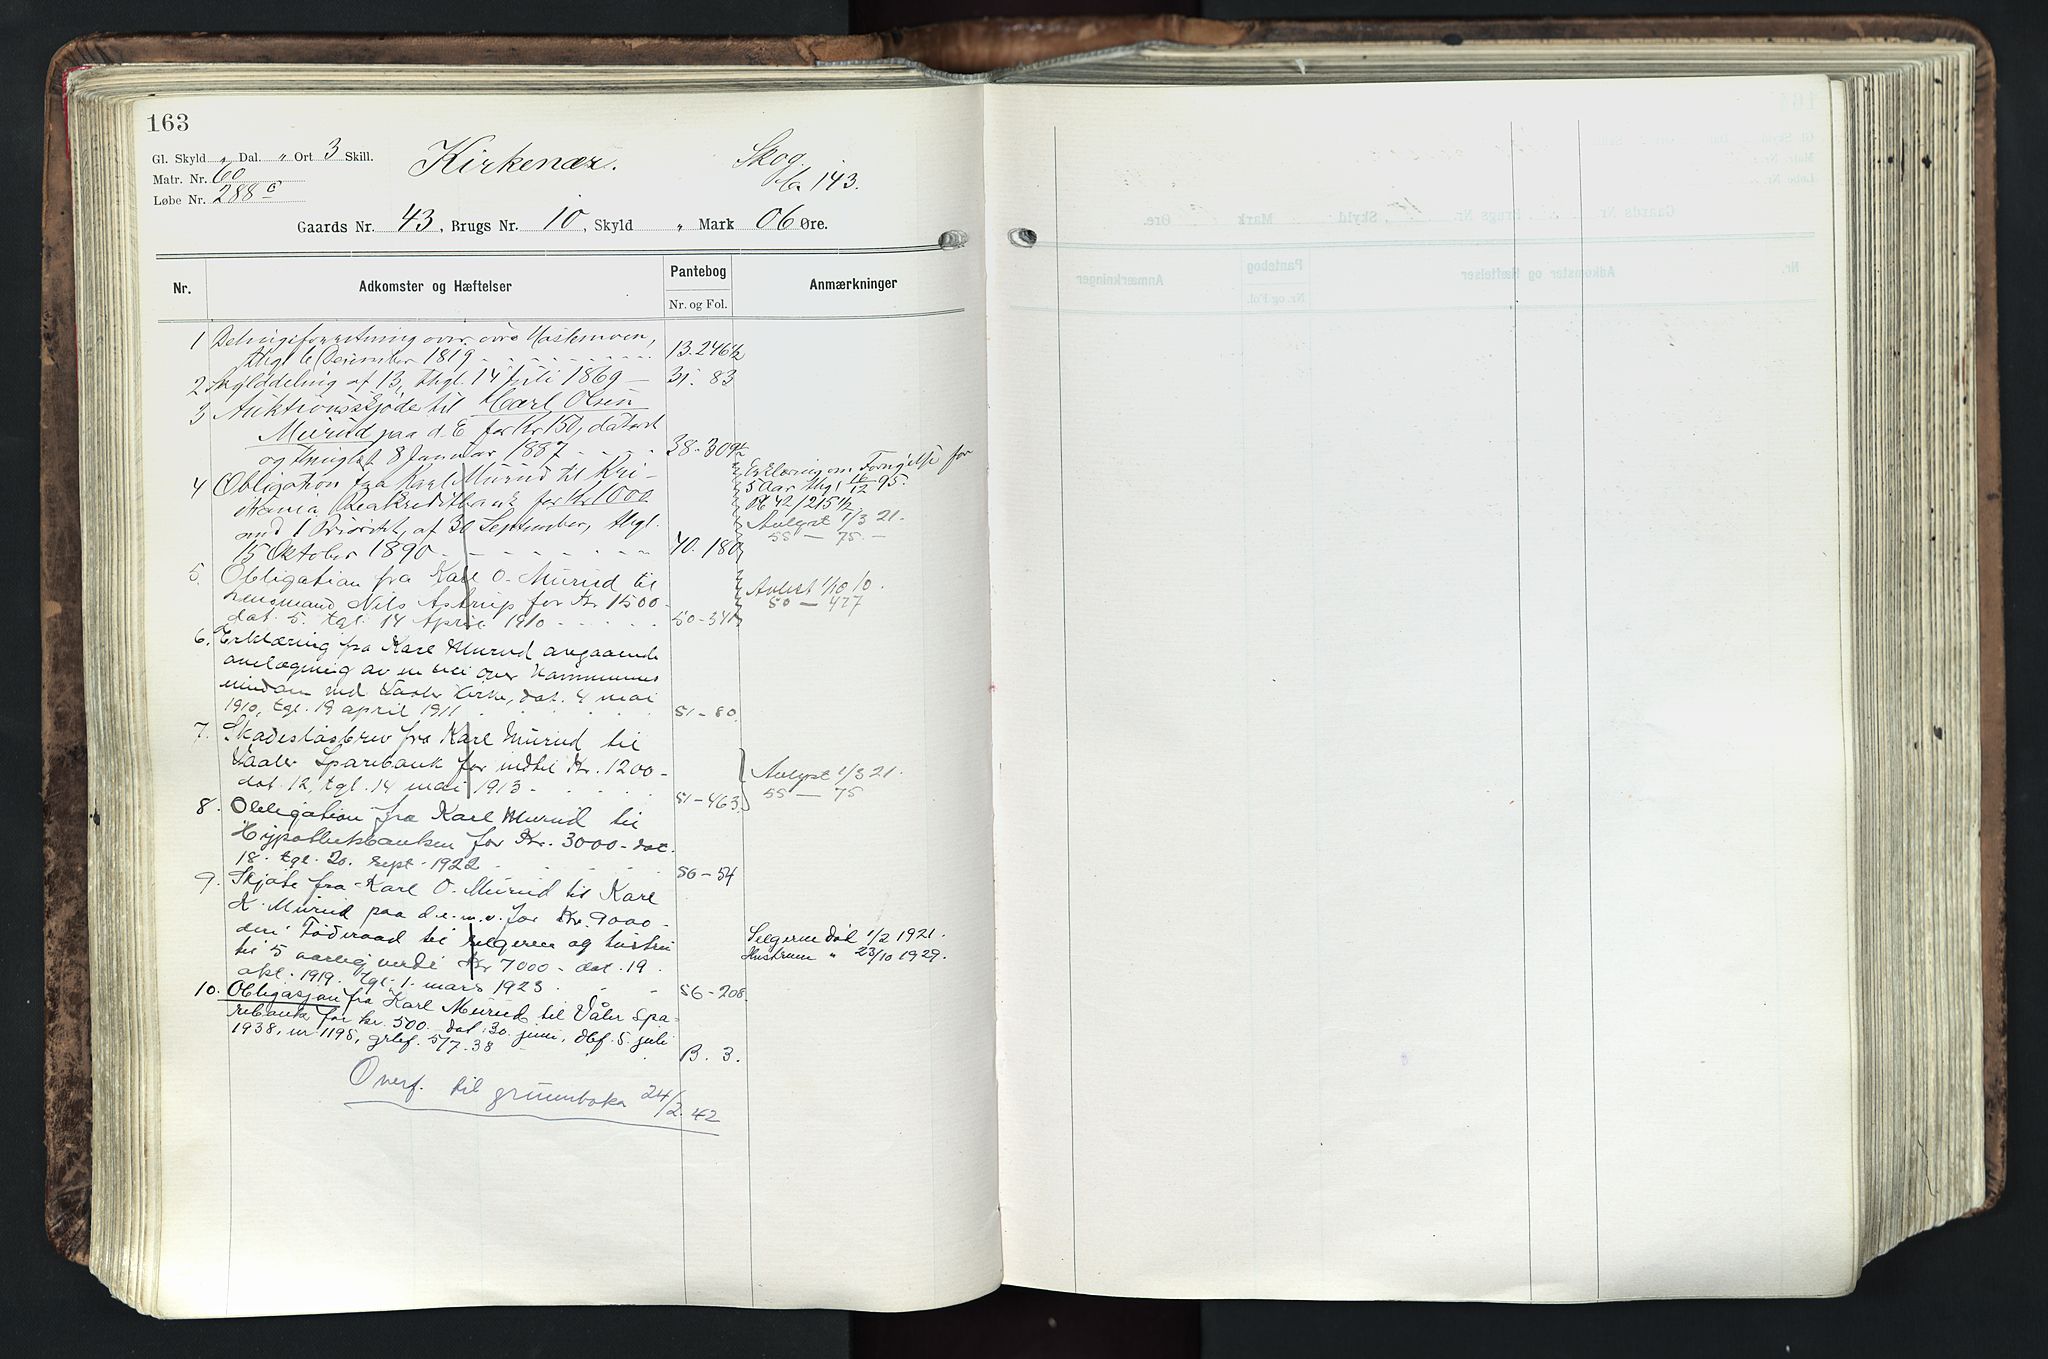 163
Gl. Skyld „ Dal. „ Ort 3 Skill.
Matr. Nr. 60
Løbe Nr. 288 c
Kirkenær.
Skog
143.
Gaards Nr. 43, Brugs Nr. 10, Skyld „ Mark 06 Øre.
Nr.
Adkomster og Hæftelser
Pantebog
Nr. og Fol.
Anmærkninger
1 Delingsforretning over øvre
thgl 6 December 1819 13. 246½
2 Skylddeling af 13, thgl. 14 Juli 1869 — 31. 83
3 Auktionsskjøde til Carl Olsen
Murud paa d. E for Kr 150, dateret
og thinglæst 8 Januar 1887 38-309½
4 Obligation fra Karl Murud til Kri-
stiania Realkreditbank for Kr 1000
med 1 Prioritet, af 30 September, thgl.
15 Oktober 1890 40. 180
Erklæring om Fornyelse for
5 Aar thgl 16/12 95.
Pb 42/215½
Avlyst 1/3 21.
55 — 75 —
5. Obligation fra Karl O. Murud til
Lensmand Nils Astrup for Kr 1500
dat. 5. tgl. 14 April 1910 50-341
Avlæst 1/10 10.
50 — 477
6. Erklæring fra Karl Murud angaaende
anlægning av en vei over Kommunens
eiendom ved Vaaler Kirke, dat. 4 mai
1910, tgl. 19 april 1911 51-80.
7. Skadesløsbrev fra Karl Murud til
Vaaler Sparebank for indtil Kr. 1200-
dat. 12, tgl. 14 mai 1913 - 51-463.
Avlyst 1/3 21.
55 — 75
8. Obligation fra Karl Murud til
Hypotekbanken for Kr. 3000- dat.
18. tgl. 20. sept. 1922 56-54
9. Skjøte fra Karl O. Murud til Karl
K. Murud paa d. e. m. v. for Kr. 9000-
deri Føderaad til selgeren og hustru
til 5 aarlig verdi Kr 7000- dat. 19.
okt. 1919. tgl. 1. mars 1923 56-208.
Selgeren død 1/2 1921.
Hustruen „ 23/10 1929.
10. Obligasjon fra Karl Murud til Våler Spa-
rebank for kr. 500.- dat. 30. juni, dbf. 5. juli
1938, nr. 1195, grlef. 5/7.38 B. 3.
Overf. til grunnboka 24/2.42
Gl. Skyld
Dal.
Matr. Nr.
Løbe Nr.
Gaards Nr.
, Brugs Nr.
, Skyld
Mark
Øre.
Nr.
Adkomster og Hæftelser
Pantebog
Nr. og Fol.
Anmærkninger